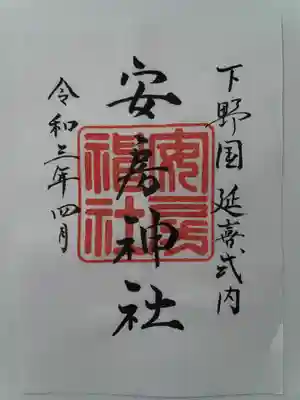 下野国 延喜式内
安房神社
安房
神社
令和三年四月